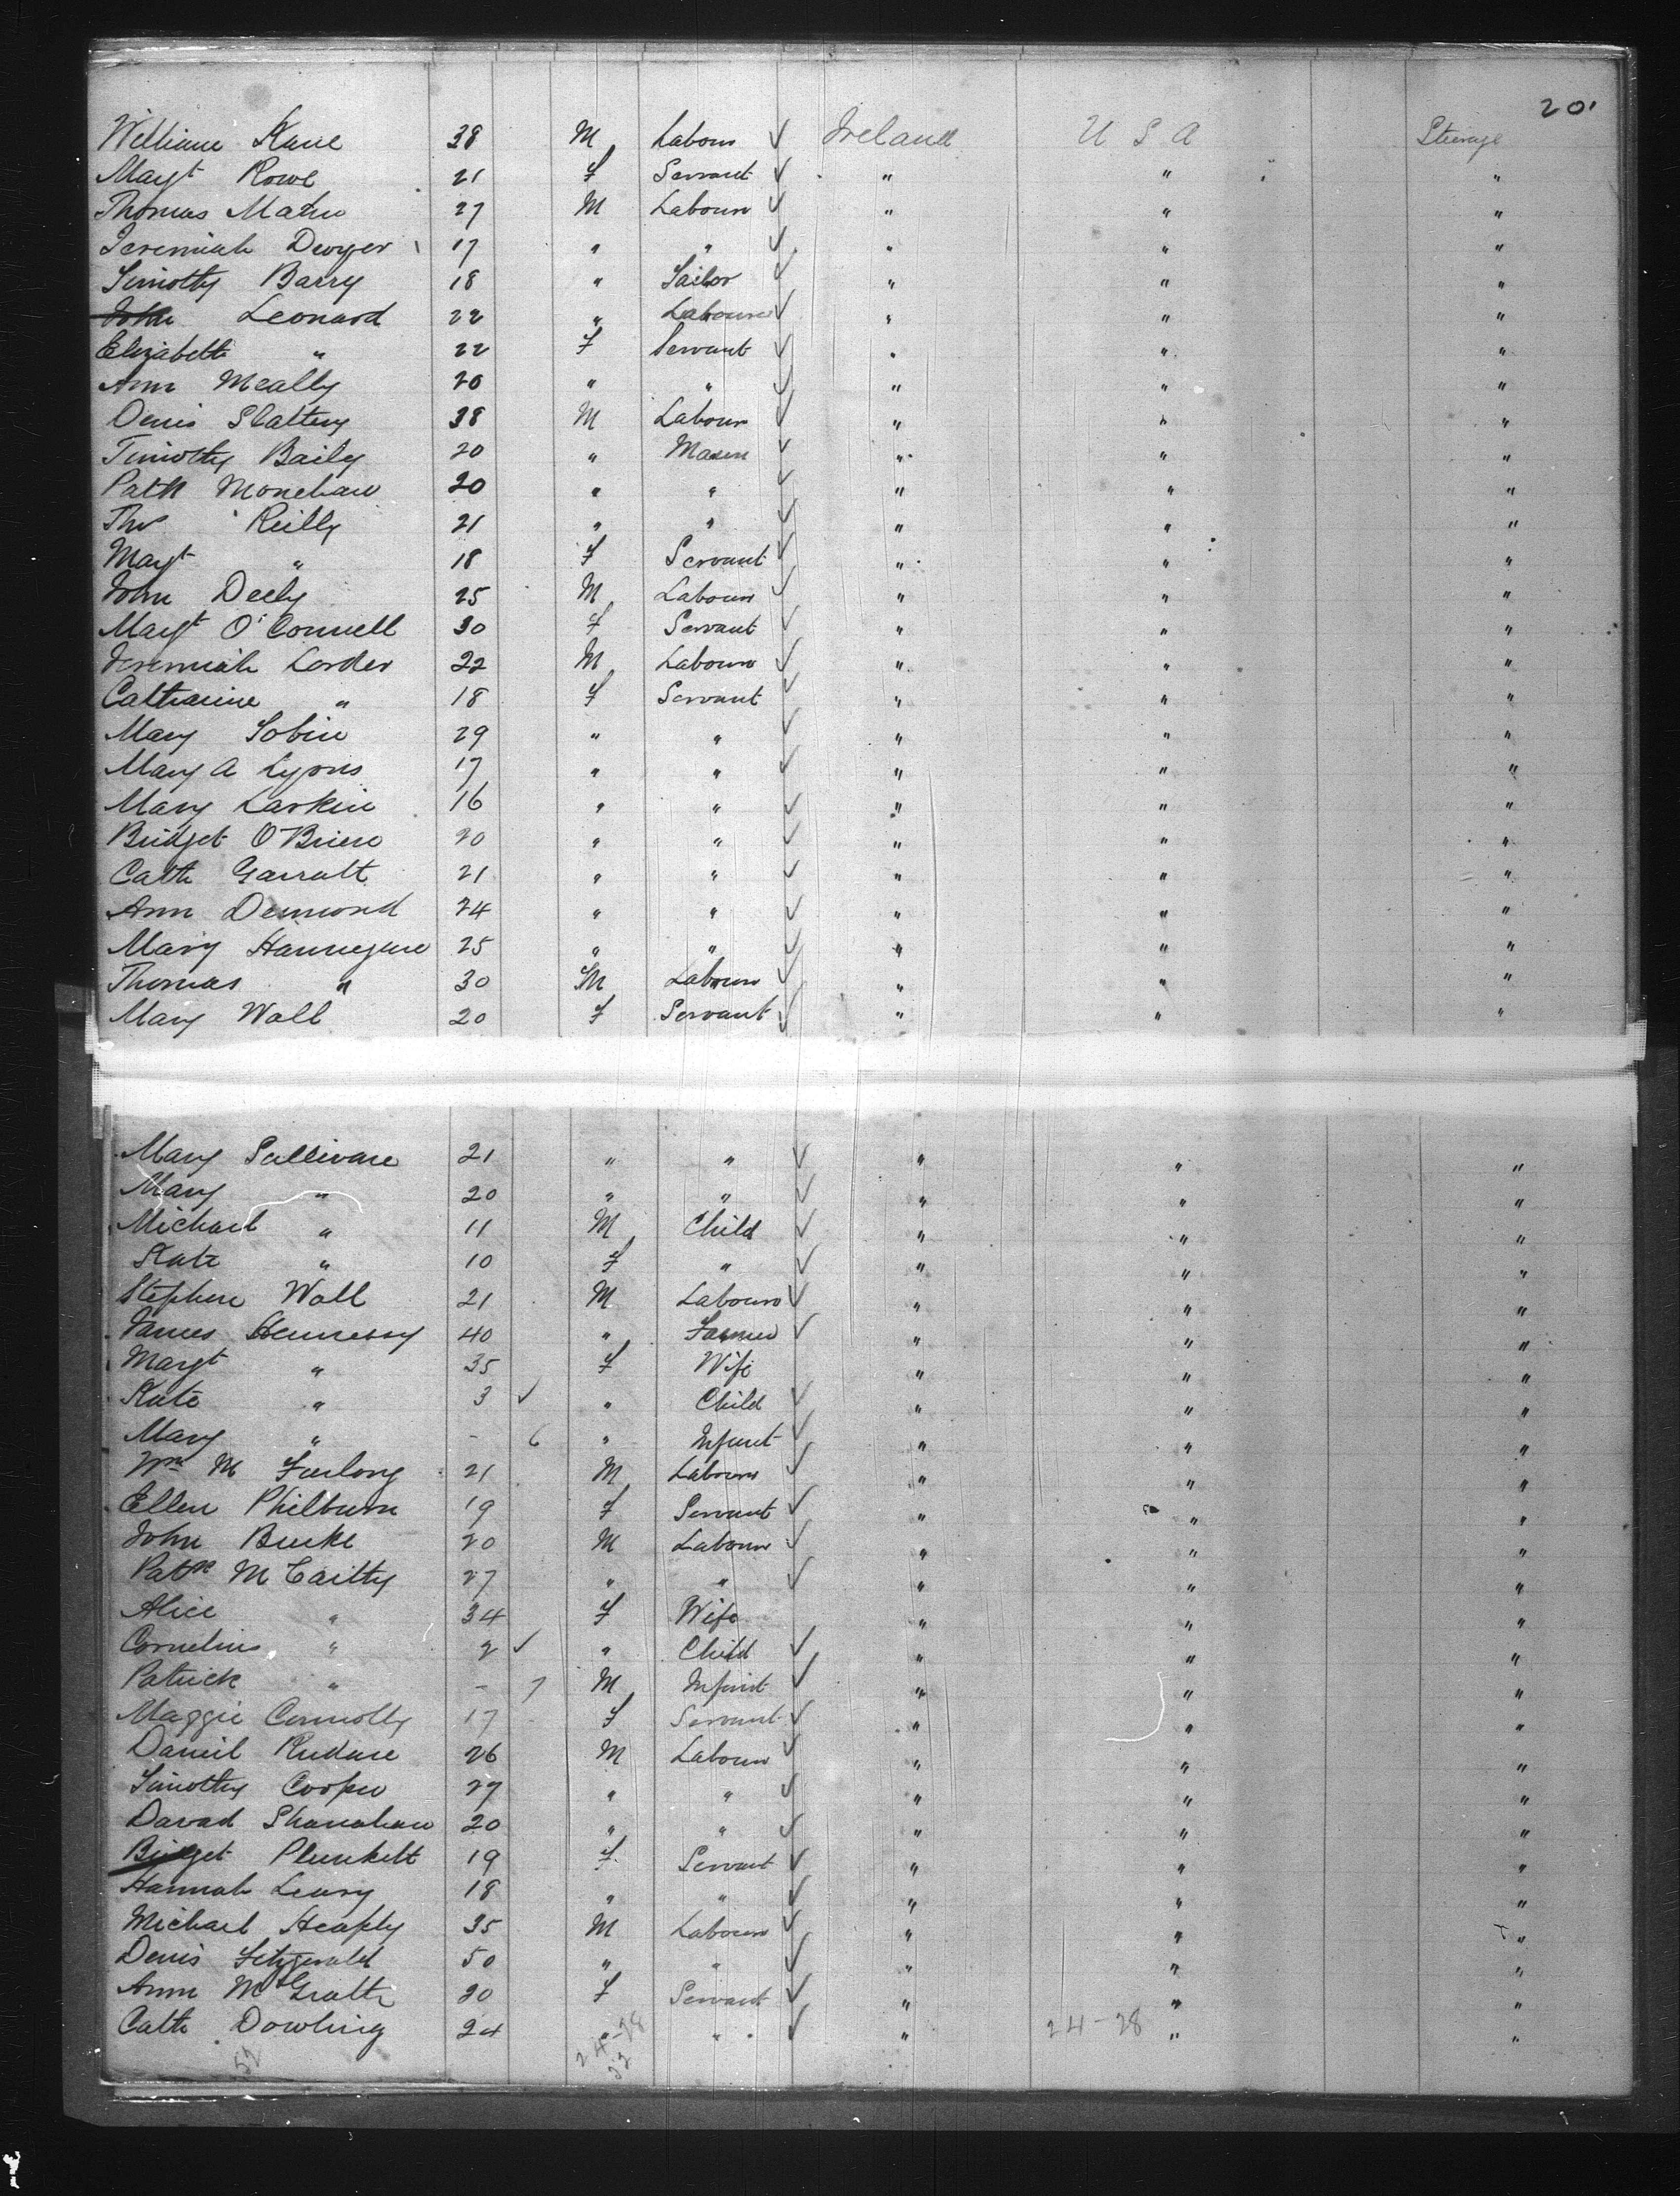 20'
William Kane 38 M Labour ✓ Ireland U S A Steerage
Margt Rowe 21 F Servant ✓ " " "
Thomas 27 M Labour ✓ " " "
Jeremiah Dwyer 17 " " ✓ " " "
Timothy Barry 18 " ✓ " " "
John Leonard 22 " Labourer ✓ " " "
Elizabeth " 22 F Servant ✓ " " "
Ann Meally 20 " " ✓ " " "
Denis Slattery 38 M Labour ✓ " " "
Timothy Baily 20 " Mason ✓ " " "
Patk Monehan 20 " " ✓ " " "
Tho Reilly 21 " " ✓ " " "
Margt " 18 F Servant ✓ " " "
John Deely 25 M Labour ✓ " " "
Margt O'Connell 30 F Servant ✓ " " "
Jeremiah Lorder 22 M Labour ✓ " " "
Catharine " 18 F Servant ✓ " " "
Mary Tobin 29 " " ✓ " " "
Mary A Lyons 17 " " ✓ " " "
Mary Larkin 16 " " ✓ " " "
Bridget O'Brien 20 " " ✓ " " "
Cath Garratt 21 " " ✓ " " "
Ann Desmond 24 " " ✓ " " "
Mary Hannegan 25 " " ✓ " " "
Thomas " 30 M Labour ✓ " " "
Mary Wall 20 F Servant ✓ " " "
Mary Sullivan 21 " " ✓ " " "
Mary " 20 " " ✓ " " "
Michael " 11 M Child ✓ " " "
Kate " 10 F " ✓ " " "
Stephen Wall 21 M Labour ✓ " " "
James Hennessy 40 " Farmer ✓ " " "
Margt " 35 F Wife " " "
Kate " 3 ✓ " Child ✓ " " "
Mary " - 6 " Infant ✓ " " "
Wm M Furlong 21 M Labour ✓ " " "
Ellen Philburn 19 F Servant ✓ " " "
John Burke 20 M Labour ✓ " " "
Patk McCarthy 27 " " ✓ " " "
Alice " 34 F Wife " " "
Cornelius " 2 ✓ " Child ✓ " " "
Patrick " - 7 M Infant ✓ " " "
Maggie Connolly 17 F Servant ✓ " " "
Daniel 26 M Labour ✓ " " "
Timothy Cooper 27 " " ✓ " " "
David Shanahan 20 " " ✓ " " "
Bridget Plunkett 19 F Servant ✓ " " "
Hannah Leary 18 " " ✓ " " "
Michael Heaphy 35 M Labour ✓ " " "
Denis Fitzgerald 50 " " ✓ " " "
Ann McGrath 20 F Servant ✓ " " "
Cath Dowling 24 " " ✓ " 24-28 " "
52 24-28